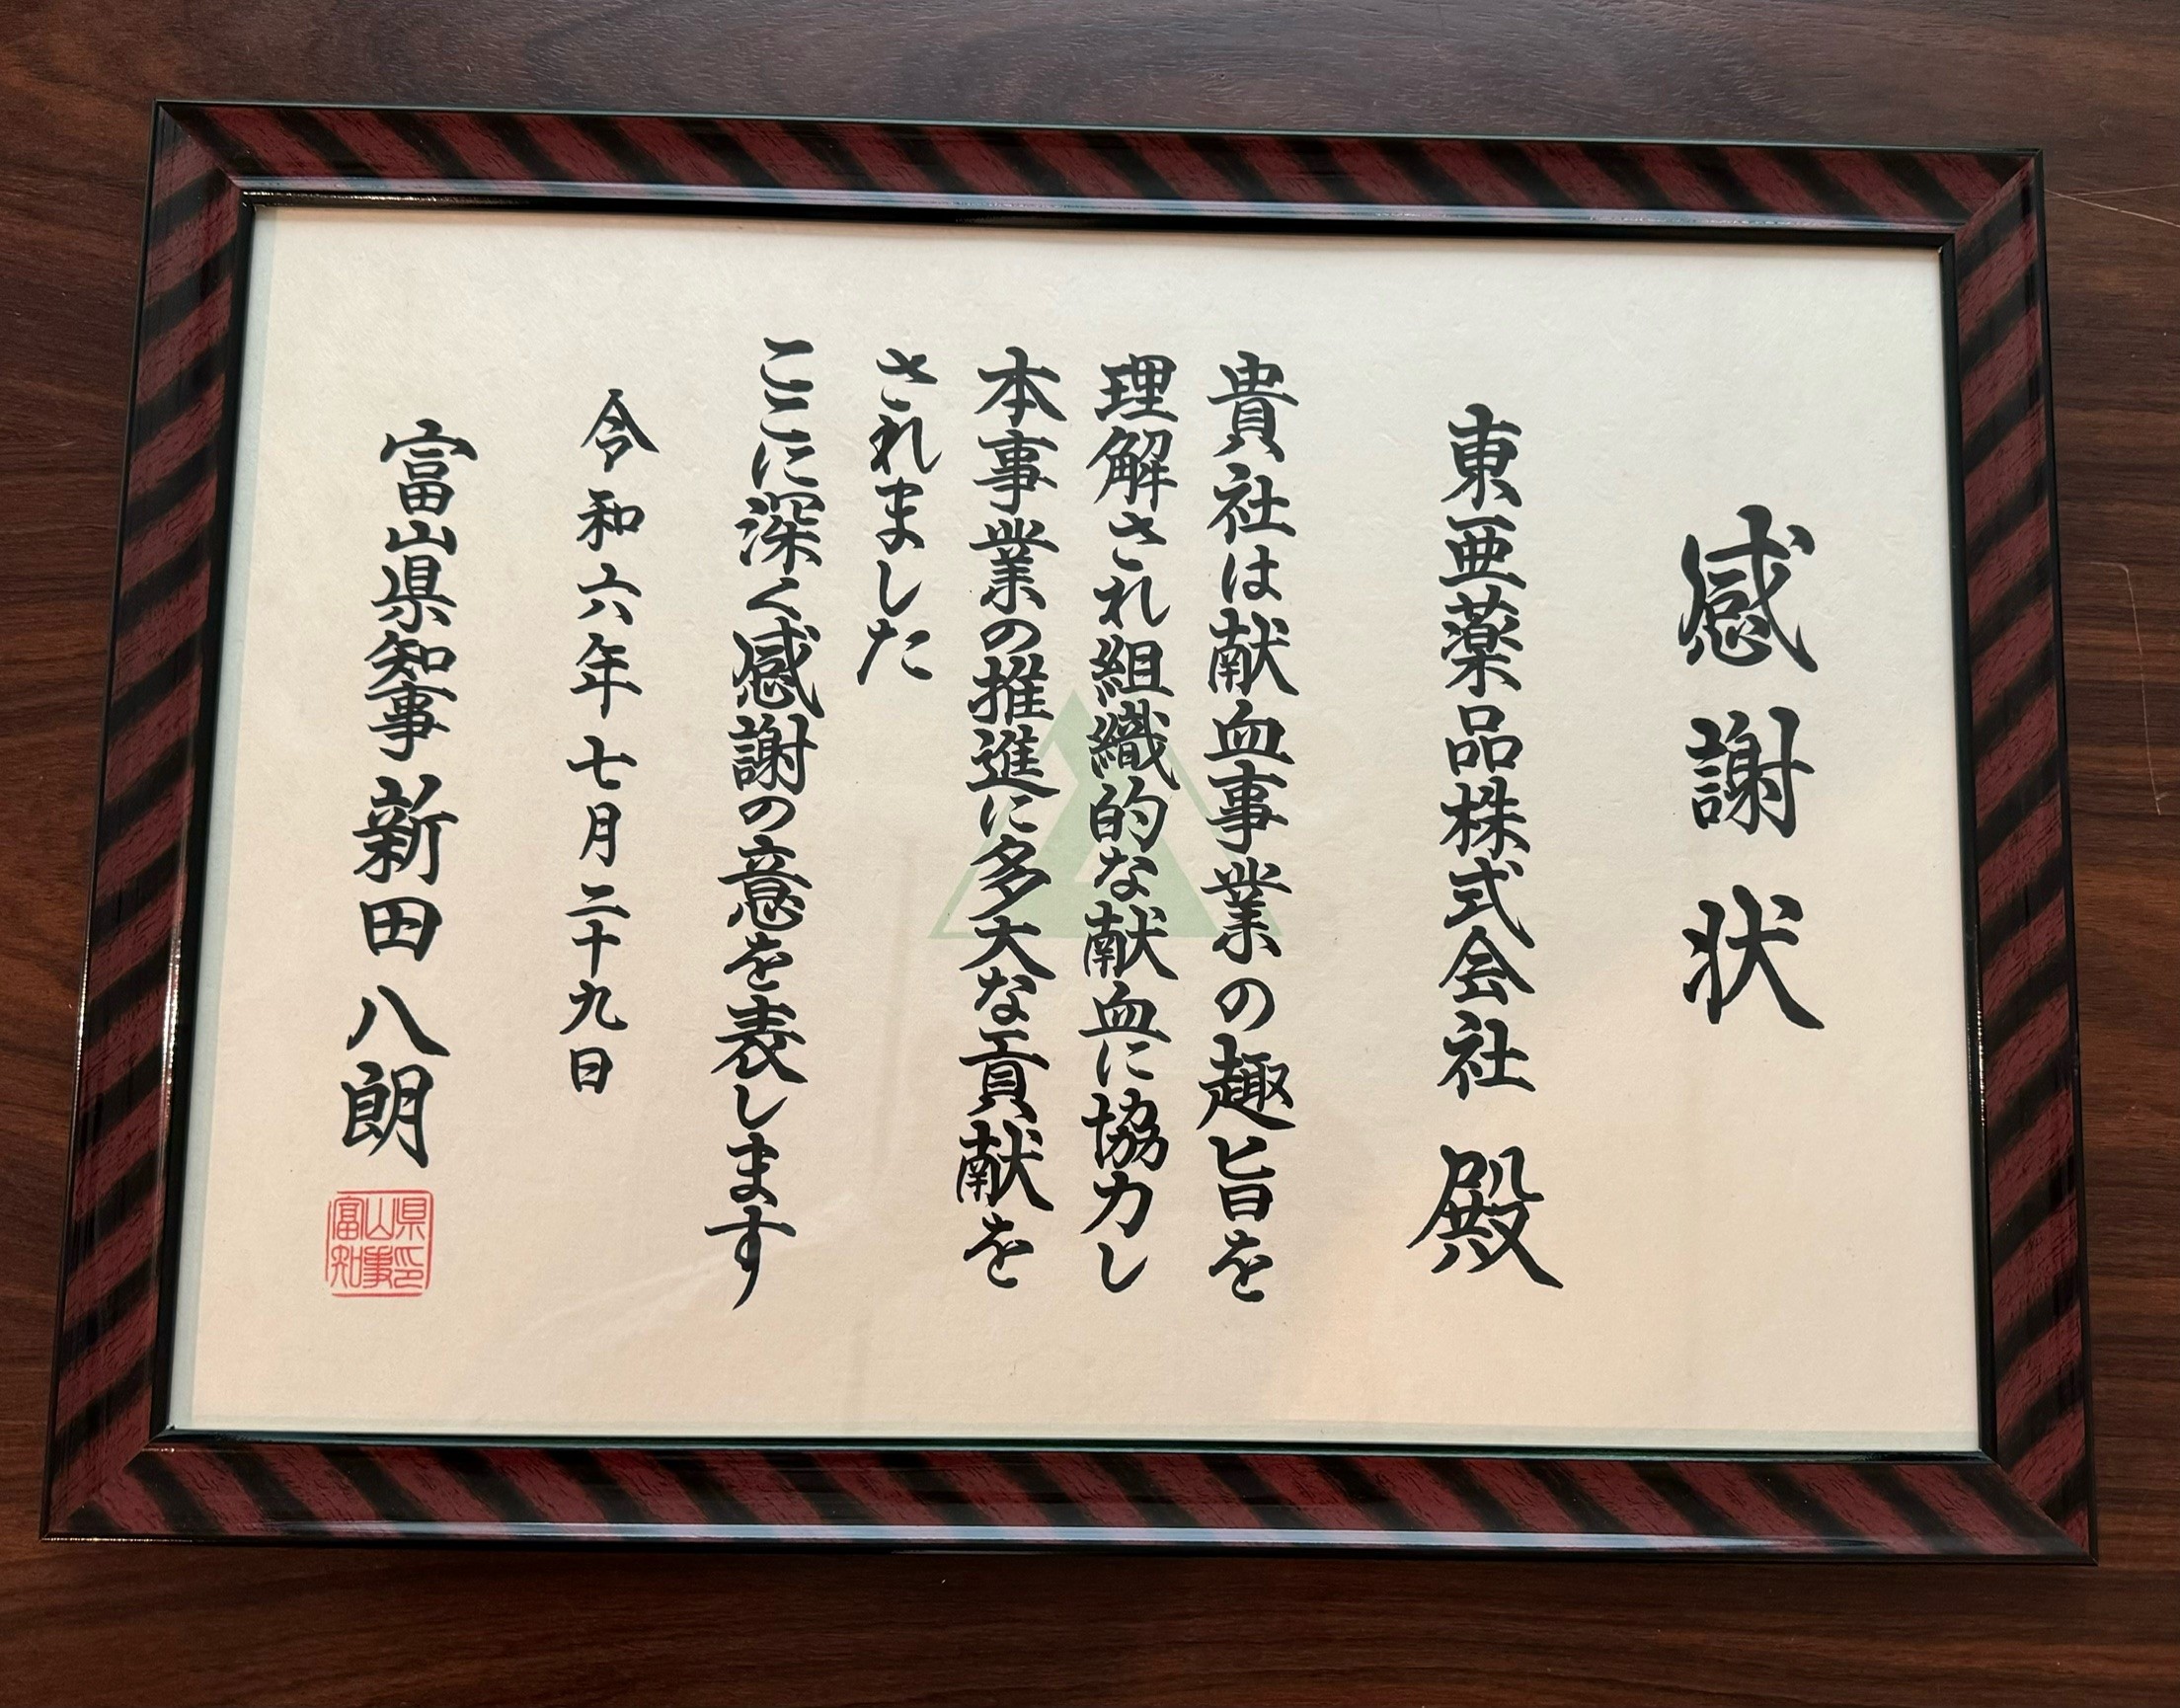 感謝状
東亜薬品株式会社 殿
貴社は献血事業の趣旨を
理解され組織的な献血に協力し
本事業の推進に多大な貢献を
されました
ここに深く感謝の意を表します
令和六年七月二十九日
富山県知事 新田八朗
富山県知事印